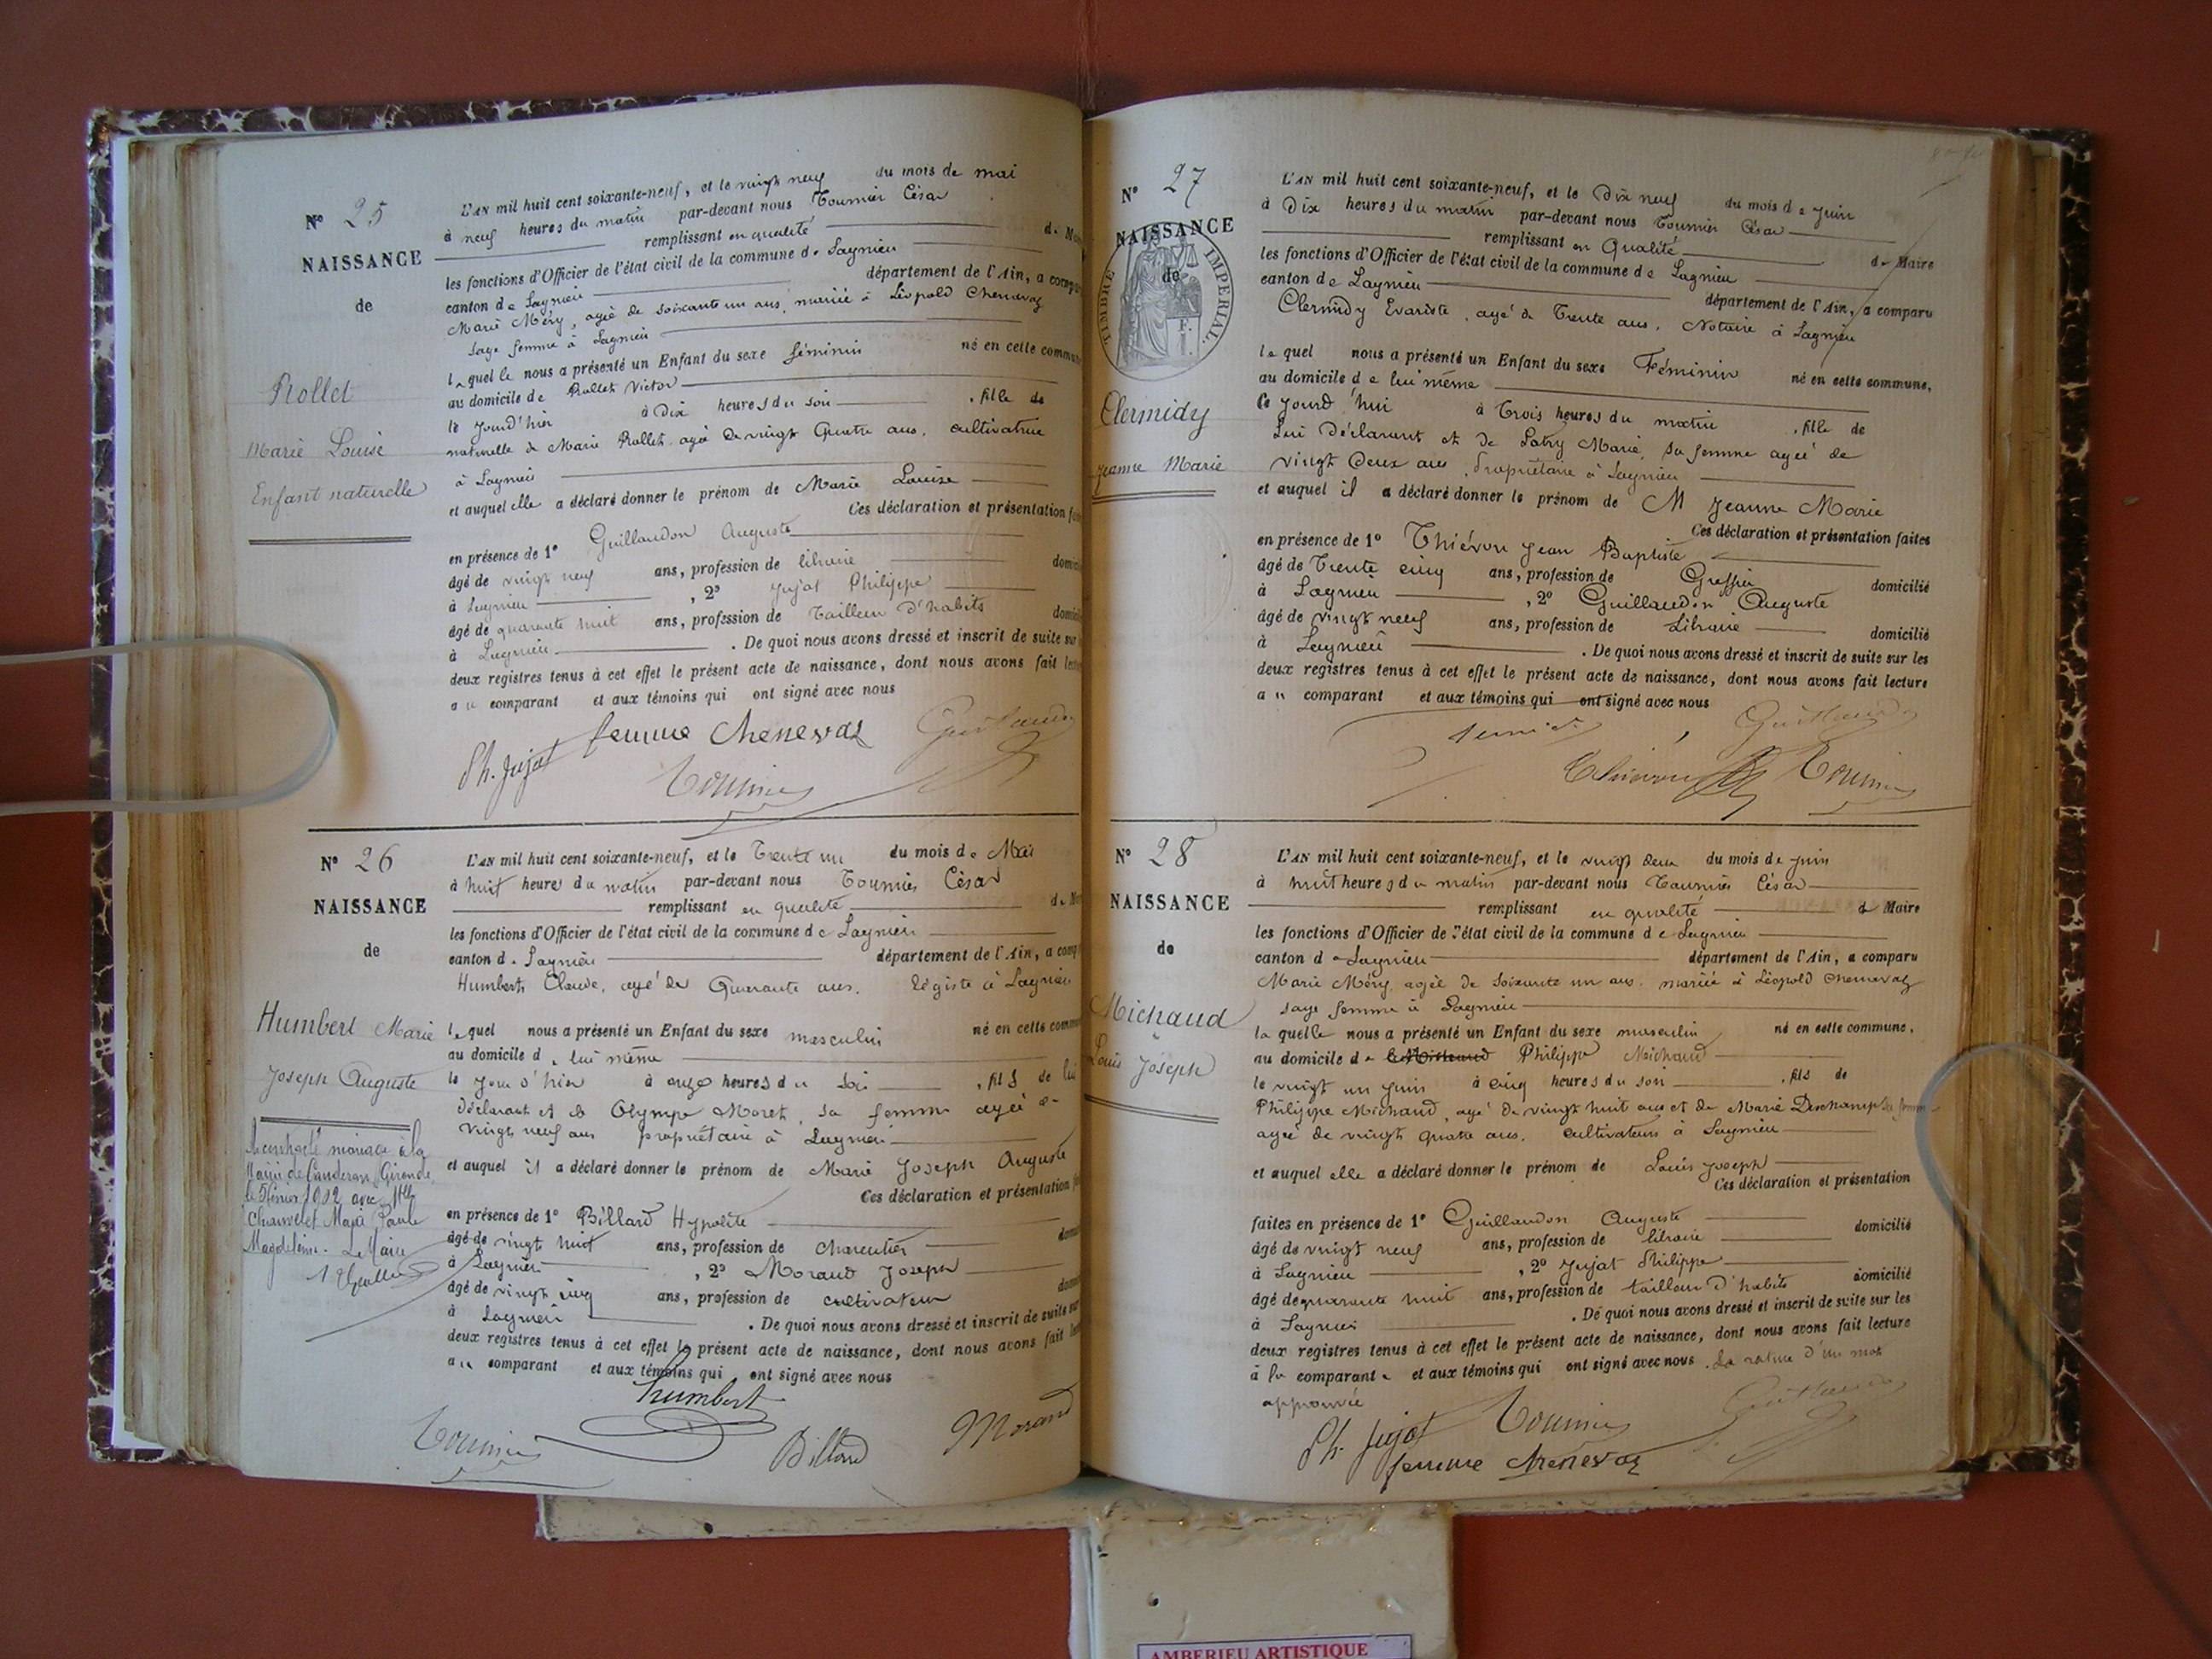 N° 25
NAISSANCE
de
Rollet
Marie Louise
Enfant naturelle
L'AN mil huit cent soixante-neuf, et le vingt neuf du mois de mai
à neuf heures du matin par-devant nous Tournier César
remplissant en qualité de
les fonctions d'Officier de l'état civil de la commune de Lagnieu
canton de Lagnieu département de l'Ain, a
Marie Méry, agée de soixante un ans, mariée à Léopold Chenevaz
sage femme à Lagnieu
laquelle nous a présenté un Enfant du sexe féminin né en cette
au domicile de Rollet Victor
le jourd'hier à Dix heures du soir , fille de
naturelle de Marie Rollet agée de vingt Quatre ans, cultivatrice
à Lagnieu
et auquel elle a déclaré donner le prénom de Marie Louise
Ces déclaration et présentation
en présence de 1° Guillaudon Auguste
âgé de vingt neuf ans, profession de libraire
à Lagnieu , 2° Jujat Philippe
âgé de quarante huit ans, profession de Tailleur d'habits
à Lagnieu . De quoi nous avons dressé et inscrit de suite sur
deux registres tenus à cet effet le présent acte de naissance, dont nous avons fait
au comparant et aux témoins qui ont signé avec nous
Ph. Jujat femme Chenevaz
Tournier
N° 26
NAISSANCE
de
Humbert Marie
Joseph Auguste
mariage à la
Gironde
1912 avec Melle
Paule
Le Maire
L'AN mil huit cent soixante-neuf, et le Trente un du mois de Mai
à huit heures du matin par-devant nous Tournier César
remplissant en qualité de
les fonctions d'Officier de l'état civil de la commune de Lagnieu
canton de Lagnieu département de l'Ain, a
Humbert Claude, agé de Quarante ans, Légiste à Lagnieu
lequel nous a présenté un Enfant du sexe masculin né en cette
au domicile de lui même
le jour d'hier à onze heures du soir , fils de lui
déclarant et de Olympe Moret, sa femme agée de
vingt neuf ans propriétaire à Lagnieu
et auquel il a déclaré donner le prénom de Marie Joseph Auguste
Ces déclaration et présentation
en présence de 1° Billard Hypolite
âgé de vingt huit ans, profession de charcutier
à Lagnieu , 2° Morand Joseph
âgé de vingt cinq ans, profession de cultivateur
à Lagnieu . De quoi nous avons dressé et inscrit de suite
deux registres tenus à cet effet le présent acte de naissance, dont nous avons fait
au comparant et aux témoins qui ont signé avec nous
humbert
Tournier Billard Morand
N° 27
NAISSANCE
de
TIMBRE IMPERIAL
Clermidy
Jeanne Marie
L'AN mil huit cent soixante-neuf, et le Dix neuf du mois de Juin
à Dix heures du matin par-devant nous Tournier César
remplissant en Qualité de Maire
les fonctions d'Officier de l'état civil de la commune de Lagnieu
canton de Lagnieu département de l'Ain, a comparu
Clermidy Evariste, agé de Trente ans, Notaire à Lagnieu
lequel nous a présenté un Enfant du sexe Féminin né en cette commune,
au domicile de lui même
ce jourd'hui à Trois heures du matin , fille de
Lui Déclarant et de Patry Marie, sa femme agée de
vingt Deux ans, Propriétaire à Lagnieu
et auquel il a déclaré donner le prénom de M Jeanne Marie
Ces déclaration et présentation faites
en présence de 1° Thiévon Jean Baptiste
âgé de Trente cinq ans, profession de Greffier domicilié
à Lagnieu , 2° Guillaudon Auguste
âgé de vingt neuf ans, profession de Libraire domicilié
à Lagnieu . De quoi nous avons dressé et inscrit de suite sur les
deux registres tenus à cet effet le présent acte de naissance, dont nous avons fait lecture
au comparant et aux témoins qui ont signé avec nous
Thiévon Tournier
N° 28
NAISSANCE
de
Michaud
Louis Joseph
L'AN mil huit cent soixante-neuf, et le vingt deux du mois de Juin
à huit heures du matin par-devant nous Tournier César
remplissant en qualité de Maire
les fonctions d'Officier de l'état civil de la commune de Lagnieu
canton de Lagnieu département de l'Ain, a comparu
Marie Méry, agée de soixante un ans, mariée à Léopold Chenevaz
sage femme à Lagnieu
laquelle nous a présenté un Enfant du sexe masculin né en cette commune,
au domicile de Philippe Michaud
le vingt un Juin à cinq heures du soir , fils de
Philippe Michaud, agé de vingt huit ans et de Marie Deschamps sa femme
agée de vingt quatre ans, cultivateurs à Lagnieu
et auquel elle a déclaré donner le prénom de Louis Joseph
Ces déclaration et présentation
faites en présence de 1° Guillaudon Auguste domicilié
âgé de vingt neuf ans, profession de libraire
à Lagnieu , 2° Jujat Philippe
âgé de quarante huit ans, profession de tailleur d'habits domicilié
à Lagnieu . De quoi nous avons dressé et inscrit de suite sur les
deux registres tenus à cet effet le présent acte de naissance, dont nous avons fait lecture
à la comparante et aux témoins qui ont signé avec nous. La rature d'un mot
approuvée
Ph. Jujat Tournier
femme Chenevaz
AMBERIEU ARTISTIQUE